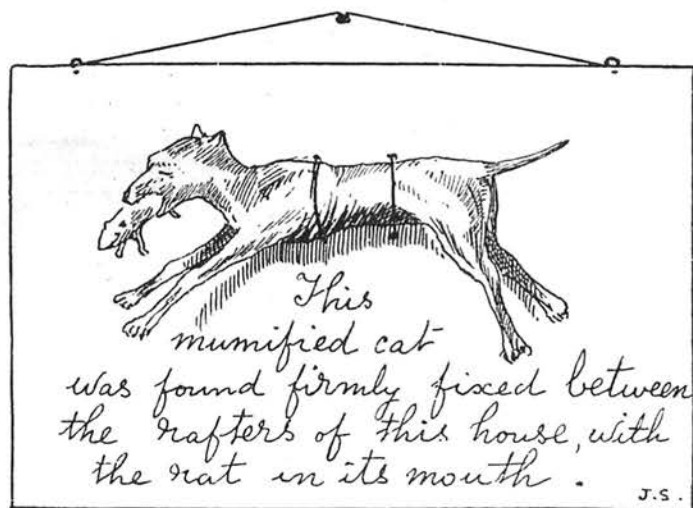 This
mumified cat
was found firmly fixed between
the rafters of this house, with
the rat in its mouth.
J.S.